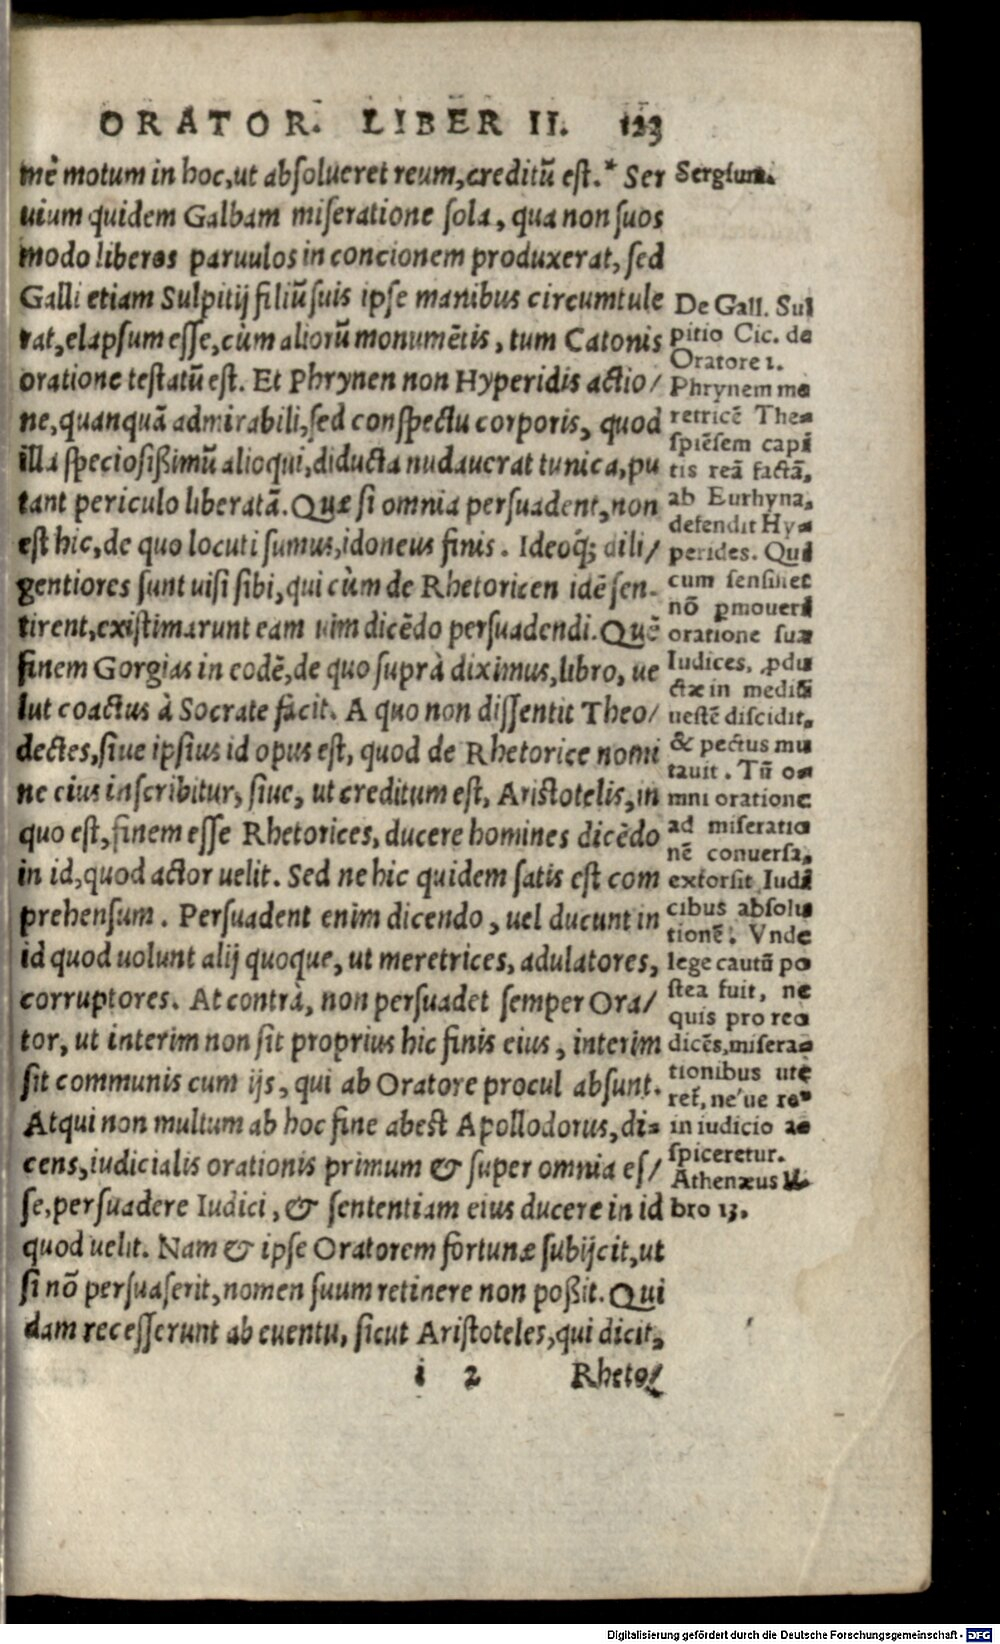 ORATOR. LIBER II. 123
mē motum in hoc, ut absolueret reum, creditū est.* Ser
uium quidem Galbam miseratione sola, qua non suos
modo liberos paruulos in concionem produxerat, sed
Galli etiam Sulpitij filiū suis ipse manibus circumtule
rat, elapsum esse, cùm aliorū monumētis, tum Catonis
oratione testatū est. Et Phrynen non Hyperidis actio/
ne, quanquā admirabili, sed conspectu corporis, quod
illa speciosißimū alioqui, diducta nudauerat tunica, pu
tant periculo liberatā. Quæ si omnia persuadent, non
est hic, de quo locuti sumus, idoneus finis. Ideoq́; dili/
gentiores sunt uisi sibi, qui cùm de Rhetoricen idē sen-
tirent, existimarunt eam uim dicēdo persuadendi. Quē
finem Gorgias in eodē, de quo suprà diximus, libro, ue
lut coactus à Socrate facit. A quo non dissentit Theo/
dectes, siue ipsius id opus est, quod de Rhetorice nomi
ne eius inscribitur, siue, ut creditum est, Aristotelis, in
quo est, finem esse Rhetorices, ducere homines dicēdo
in id, quod actor uelit. Sed ne hic quidem satis est com
prehensum. Persuadent enim dicendo, uel ducunt in
id quod uolunt alij quoque, ut meretrices, adulatores,
corruptores. At contrà, non persuadet semper Ora/
tor, ut interim non sit proprius hic finis eius, interim
sit communis cum ijs, qui ab Oratore procul absunt.
Atqui non multum ab hoc fine abest Apollodorus, di-
cens, iudicialis orationis primum & super omnia es/
se, persuadere Iudici, & sententiam eius ducere in id
quod uelit. Nam & ipse Oratorem fortunæ subijcit, ut
si nō persuaserit, nomen suum retinere non poßit. Qui
dam recesserunt ab euentu, sicut Aristoteles, qui dicit,
i 2 Rheto/
Sergium.
De Gall. Sul
pitio Cic. de
Oratore 1.
Phrynem me
retricē The-
spiēsem capi
tis reā factā,
ab Euthyna,
defendit Hy-
perides. Qui
cum sensisset
nō ꝑmoueri
oratione sua
Iudices, ꝓdu
ctæ in mediū
uestē discidit,
& pectus nu
tauit. Tū o-
mni oratione
ad miseratio
nē conuersa,
extorsit Iudi
cibus absolu
tionē. Vnde
lege cautū po
stea fuit, ne
quis pro reo
dicēs, misera-
tionibus ute
ret̄, ne'ue re'
in iudicio a-
spiceretur.
Athenæus li-
bro 13.
Digitalisierung gefördert durch die Deutsche Forschungsgemeinschaft - DFG